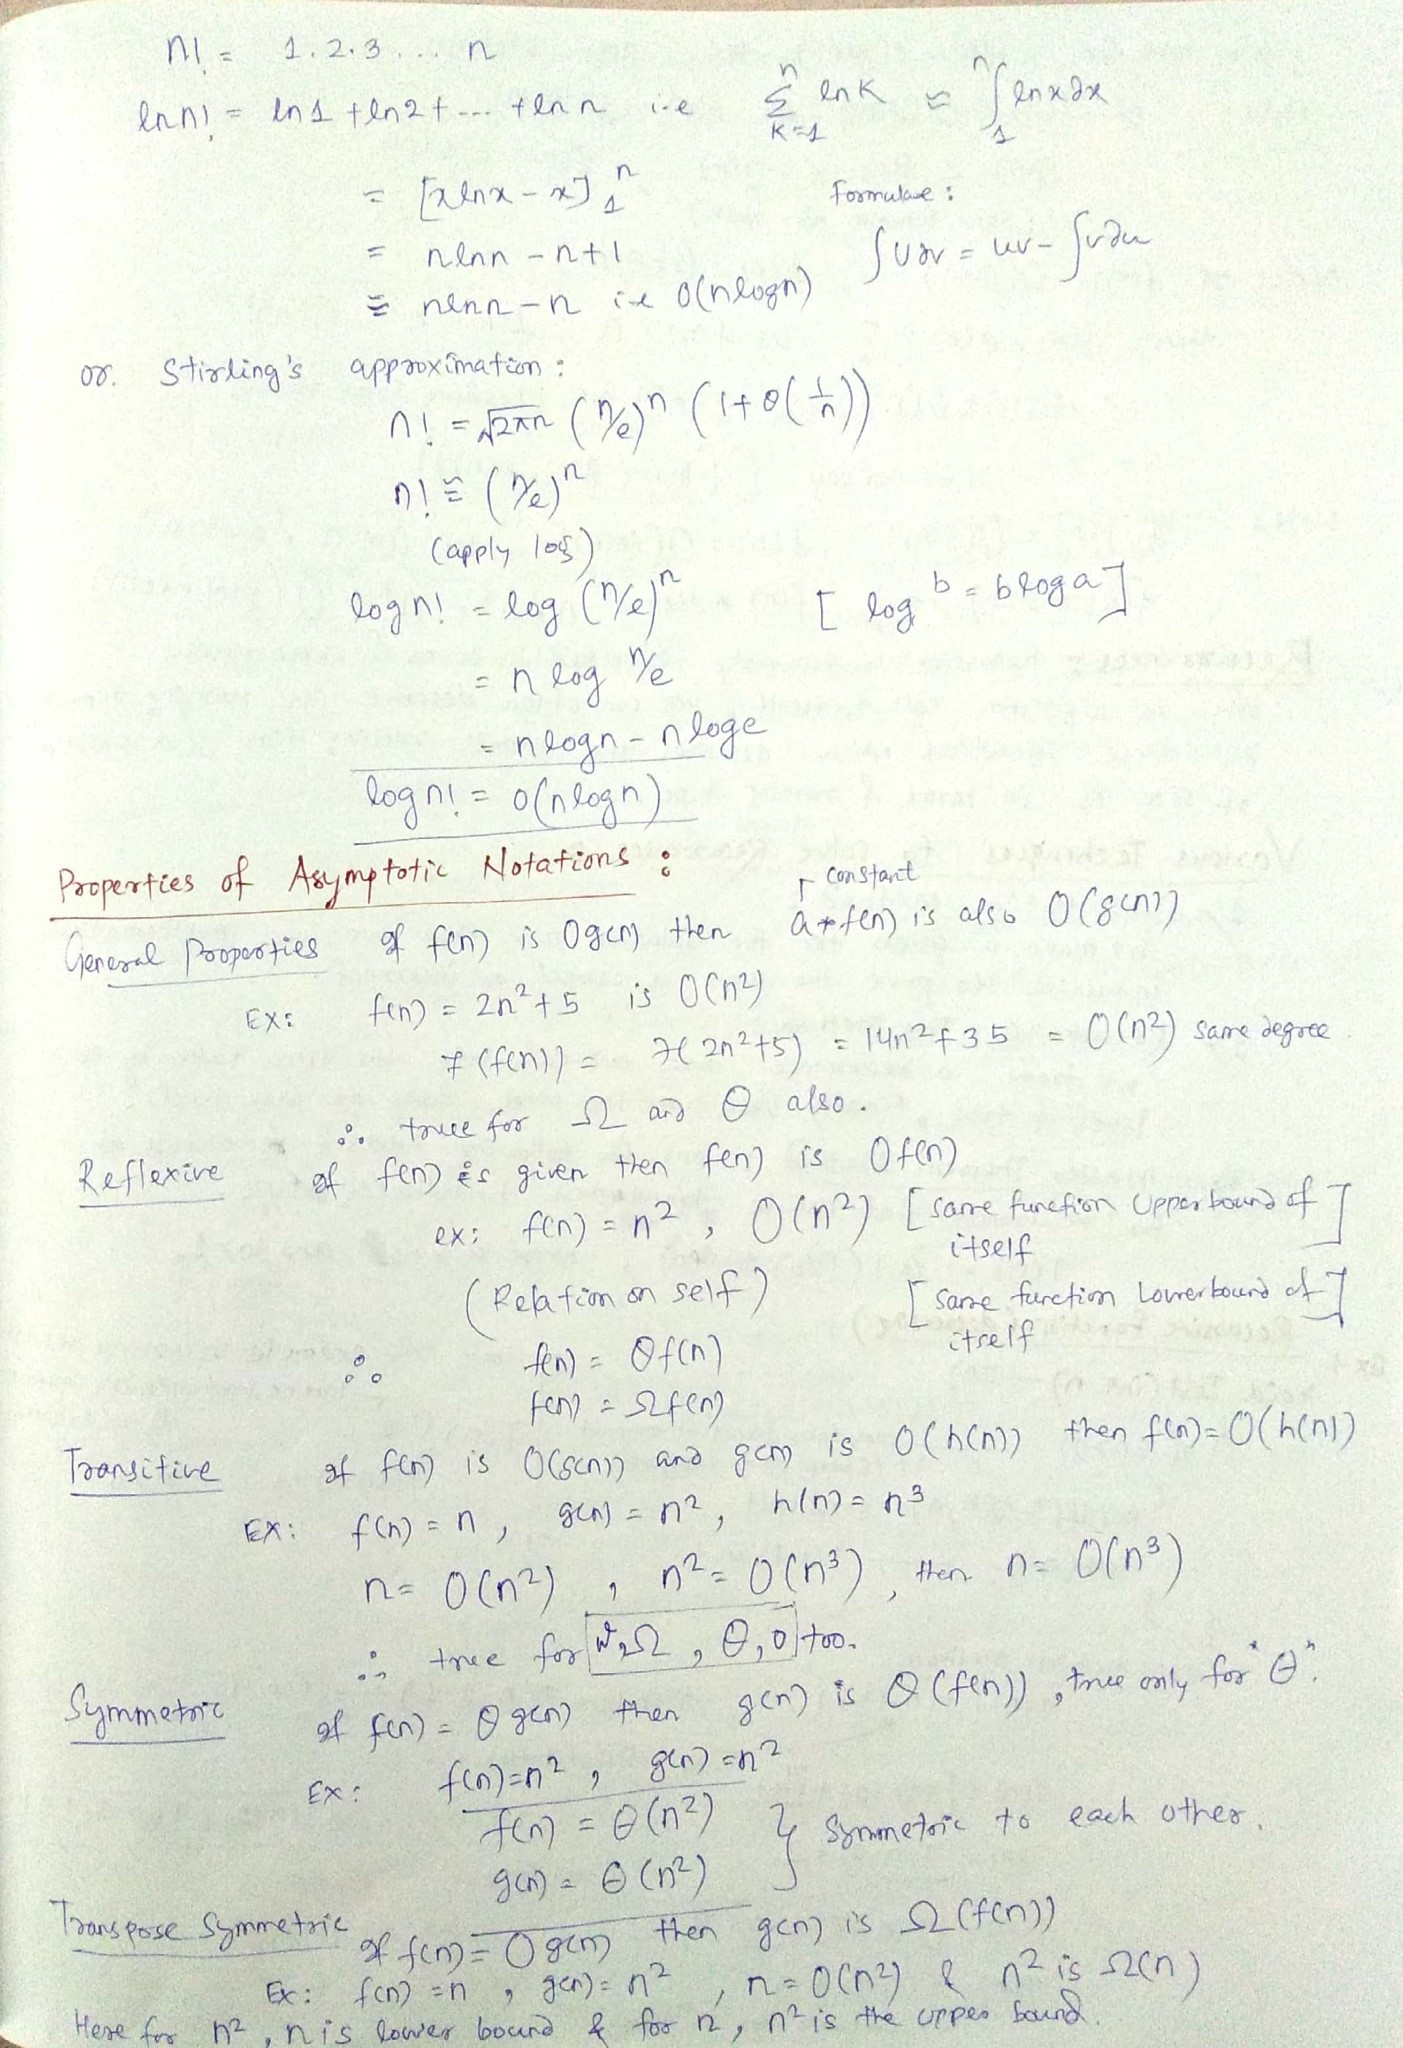 n! = 1.2.3 ... n
ln n! = ln 1 + ln 2 + ... + ln n i.e Σ_{k=1}^{n} ln k ≅ ∫_1^n ln x ∂x
= [x ln x − x]_1^n
Formulae :
= n ln n − n + 1
∫ u ∂v = uv − ∫ v ∂u
≅ n ln n − n i.e O(n log n)
or. Stirling's approximation :
n! = √2πn (n/e)^n (1 + Θ(1/n))
n! ≅ (n/e)^n
(apply log)
log n! = log (n/e)^n [ log_a^b = b log a ]
= n log n/e
= n log n − n log e
log n! = O(n log n)
Properties of Asymptotic Notations :
constant
General Properties If f(n) is O g(n) then a * f(n) is also O(g(n))
EX: f(n) = 2n² + 5 is O(n²)
7(f(n)) = 7(2n²+5) = 14n² + 35 = O(n²) same degree.
∴ true for Ω and Θ also.
Reflexive If f(n) is given then f(n) is O f(n)
ex: f(n) = n², O(n²) [ same function Upper bound of itself ]
(Relation on self) [ same function Lowerbound of itself ]
∴ f(n) = Θ f(n)
f(n) = Ω f(n)
Transitive If f(n) is O(g(n)) and g(n) is O(h(n)) then f(n) = O(h(n))
EX: f(n) = n, g(n) = n², h(n) = n³
n = O(n²), n² = O(n³), then n = O(n³)
∴ true for ω, Ω, Θ, o too.
Symmetric If f(n) = Θ g(n) then g(n) is Θ(f(n)), true only for "Θ".
EX: f(n) = n², g(n) = n²
f(n) = Θ(n²)
g(n) = Θ(n²) } Symmetric to each other.
Transpose Symmetric If f(n) = O g(n) then g(n) is Ω(f(n))
Ex: f(n) = n, g(n) = n², n = O(n²) & n² is Ω(n)
Here for n², n is lower bound & for n, n² is the upper bound.